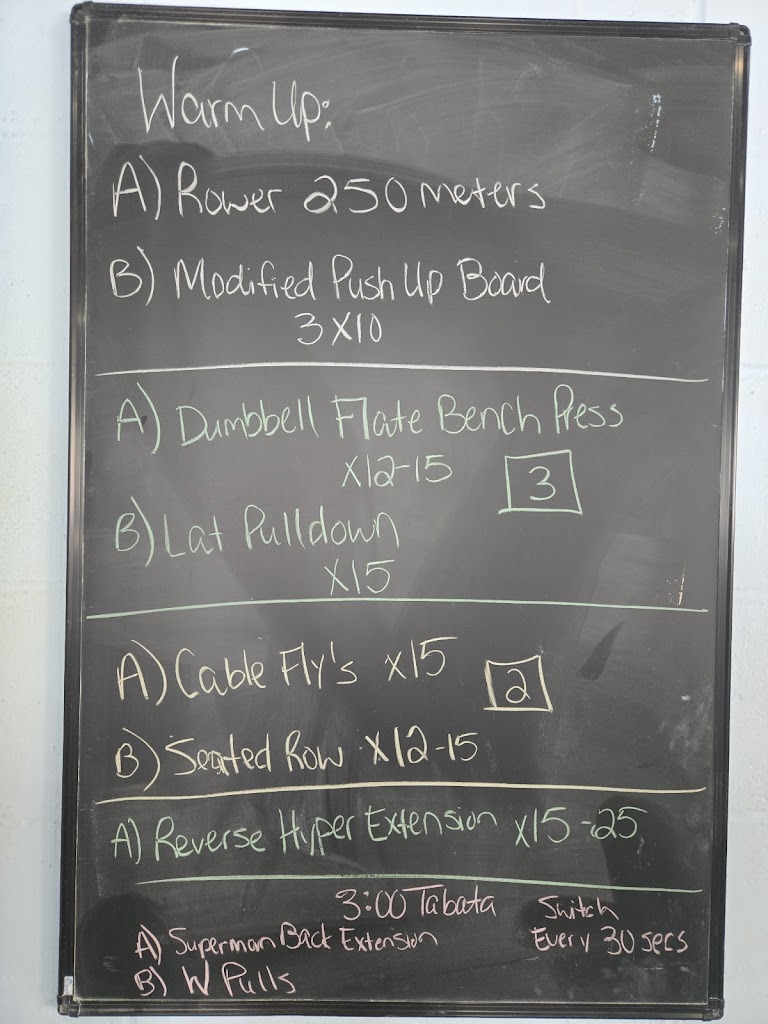 Warm Up:
A) Rower 250 meters
B) Modified Push Up Board
3 X10
A) Dumbbell Flate Bench Press
X12-15
3
B) Lat Pulldown
X15
A) Cable Fly's x15
2
B) Seated Row X12-15
A) Reverse Hyper Extension x15-25
3:00 Tabata Switch
A) Superman Back Extension Every 30 secs
B) W Pulls